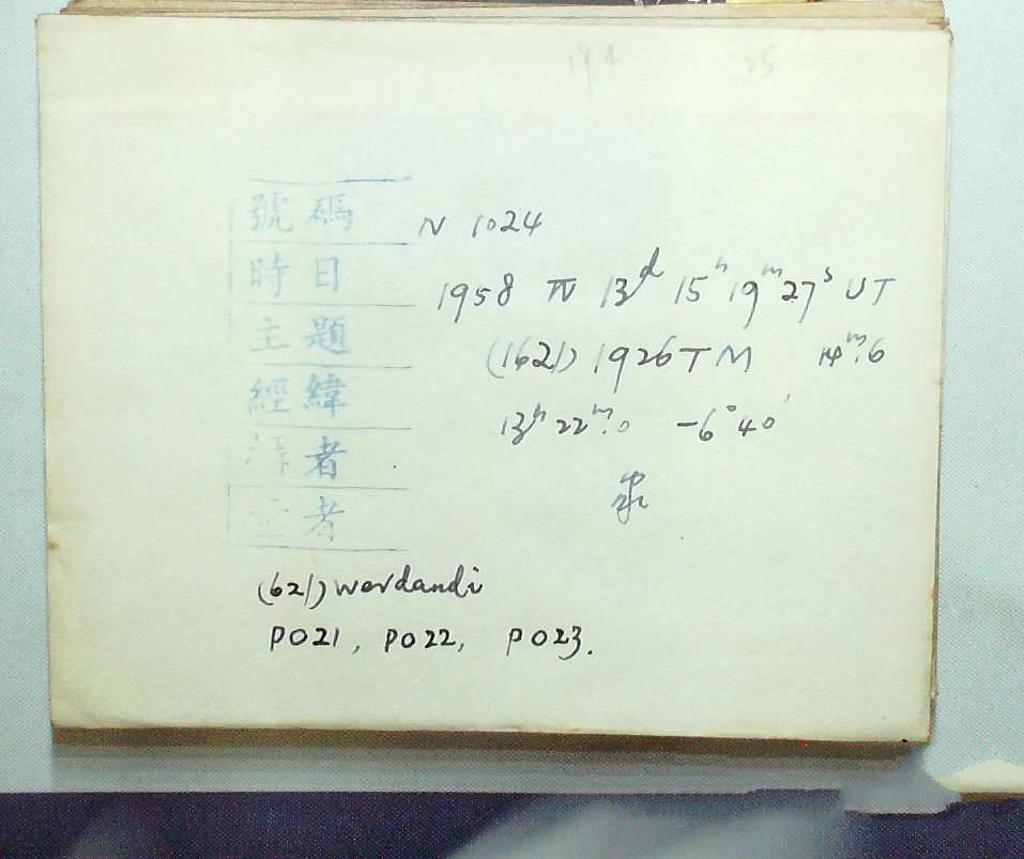 號碼 N 1024
時日 1958 IV 13ᵈ 15ʰ 19ᵐ 27ˢ UT
主題 (1621) 1926 TM 14ᵐ.6
經緯 13ʰ 22ᵐ.0 -6° 40'
者
者
(621) Werdandi
P021, P022, P023.